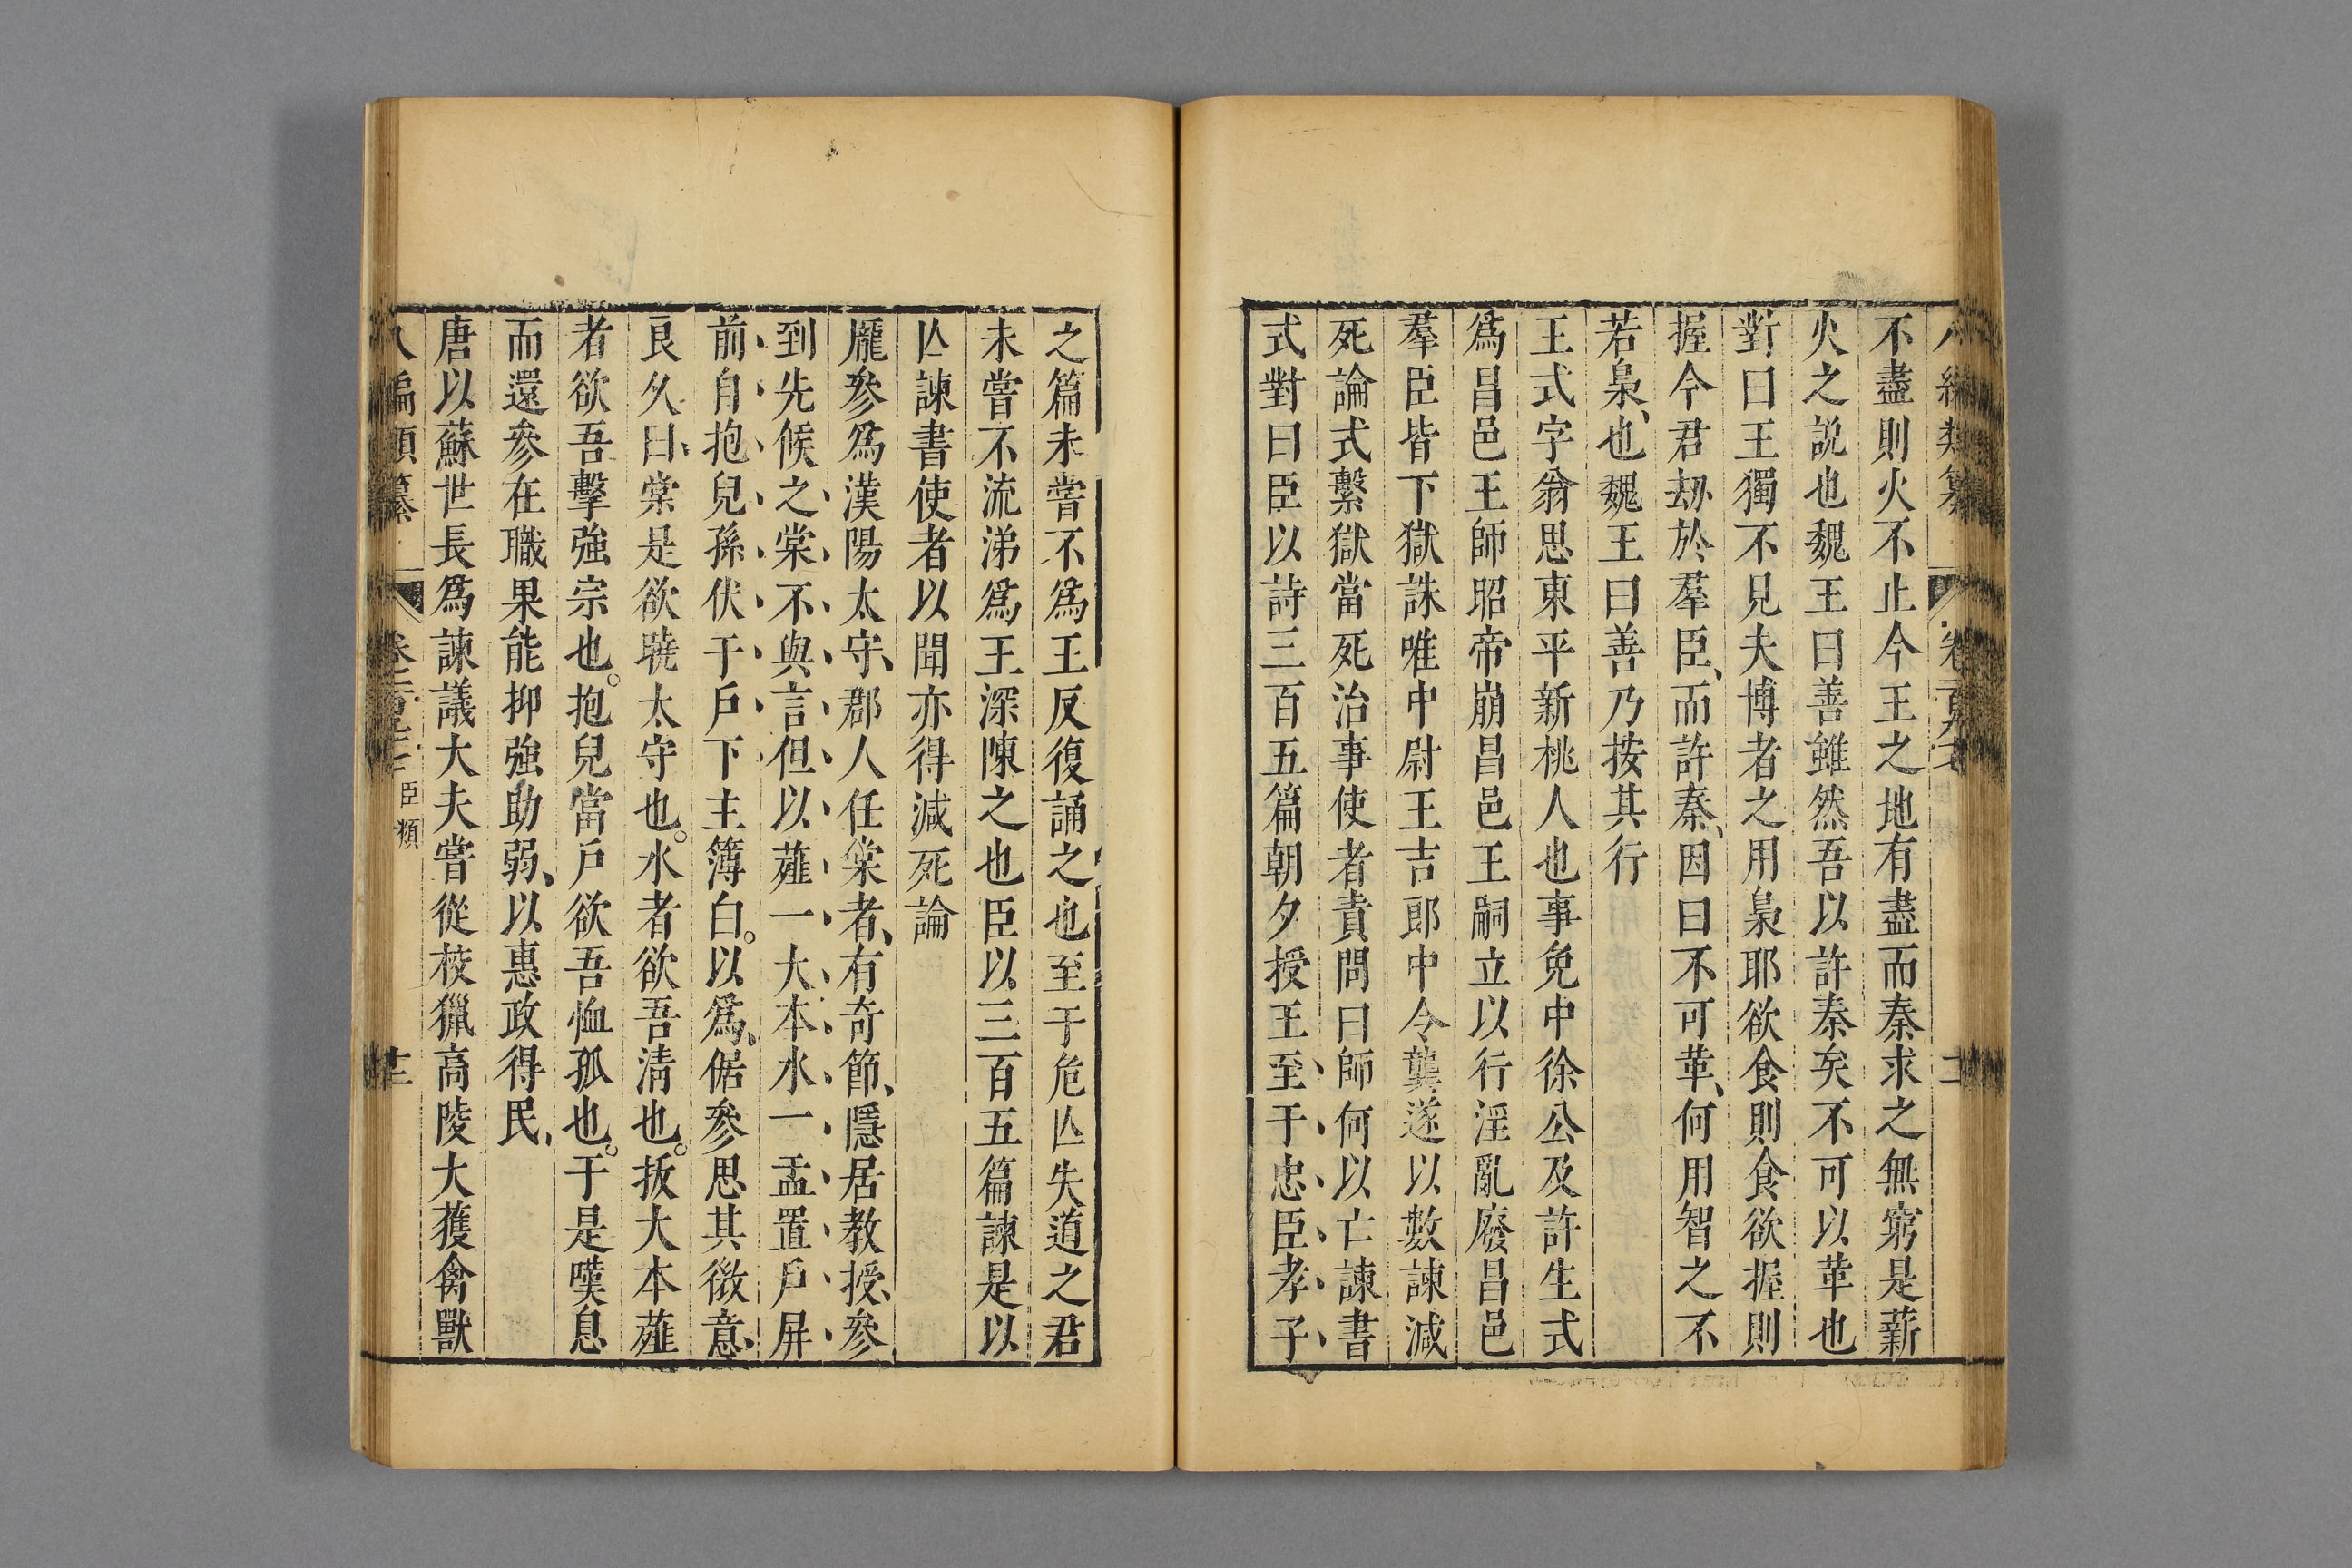 不盡則火不止今王之地有盡而秦求之無窮是薪
火之説也魏王曰善雖然吾以許秦矣不可以革也
對曰王獨不見夫博者之用梟耶欲食則食欲握則
握今君刼於羣臣、而許秦、因曰不可革、何用智之不
若梟、也魏王曰善乃按其行
王式字翁思東平新桃人也事免中徐公及許生式
爲昌邑王師昭帝崩昌邑王嗣立以行淫亂廢昌邑
羣臣皆下獄誅唯中尉王吉郎中令龔遂以數諫減
死論式繫獄當死治事使者責問曰師何以亡諫書
式對曰臣以詩三百五篇朝夕授王至于忠臣孝子
之篇未嘗不爲王反復誦之也至于危亾失道之君
未嘗不流涕爲王深陳之也臣以三百五篇諫是以
亾諫書使者以聞亦得減死論
龐參爲漢陽太守、郡人任棠者、有奇節、隱居教授、參
到先候之棠不與言但以薤一大本水一盂置戶屏
前自抱兒孫伏于戶下主簿白。以爲、倨參思其微意、
良久曰、棠是欲曉太守也。水者欲吾淸也。拔大本薤
者欲吾擊強宗也。抱兒當戶欲吾恤孤也。于是嘆息
而還參在職果能抑強助弱、以惠政得民、
唐以蘇世長爲諫議大夫嘗從校獵高陵大獲禽獸
八編類纂
臣類